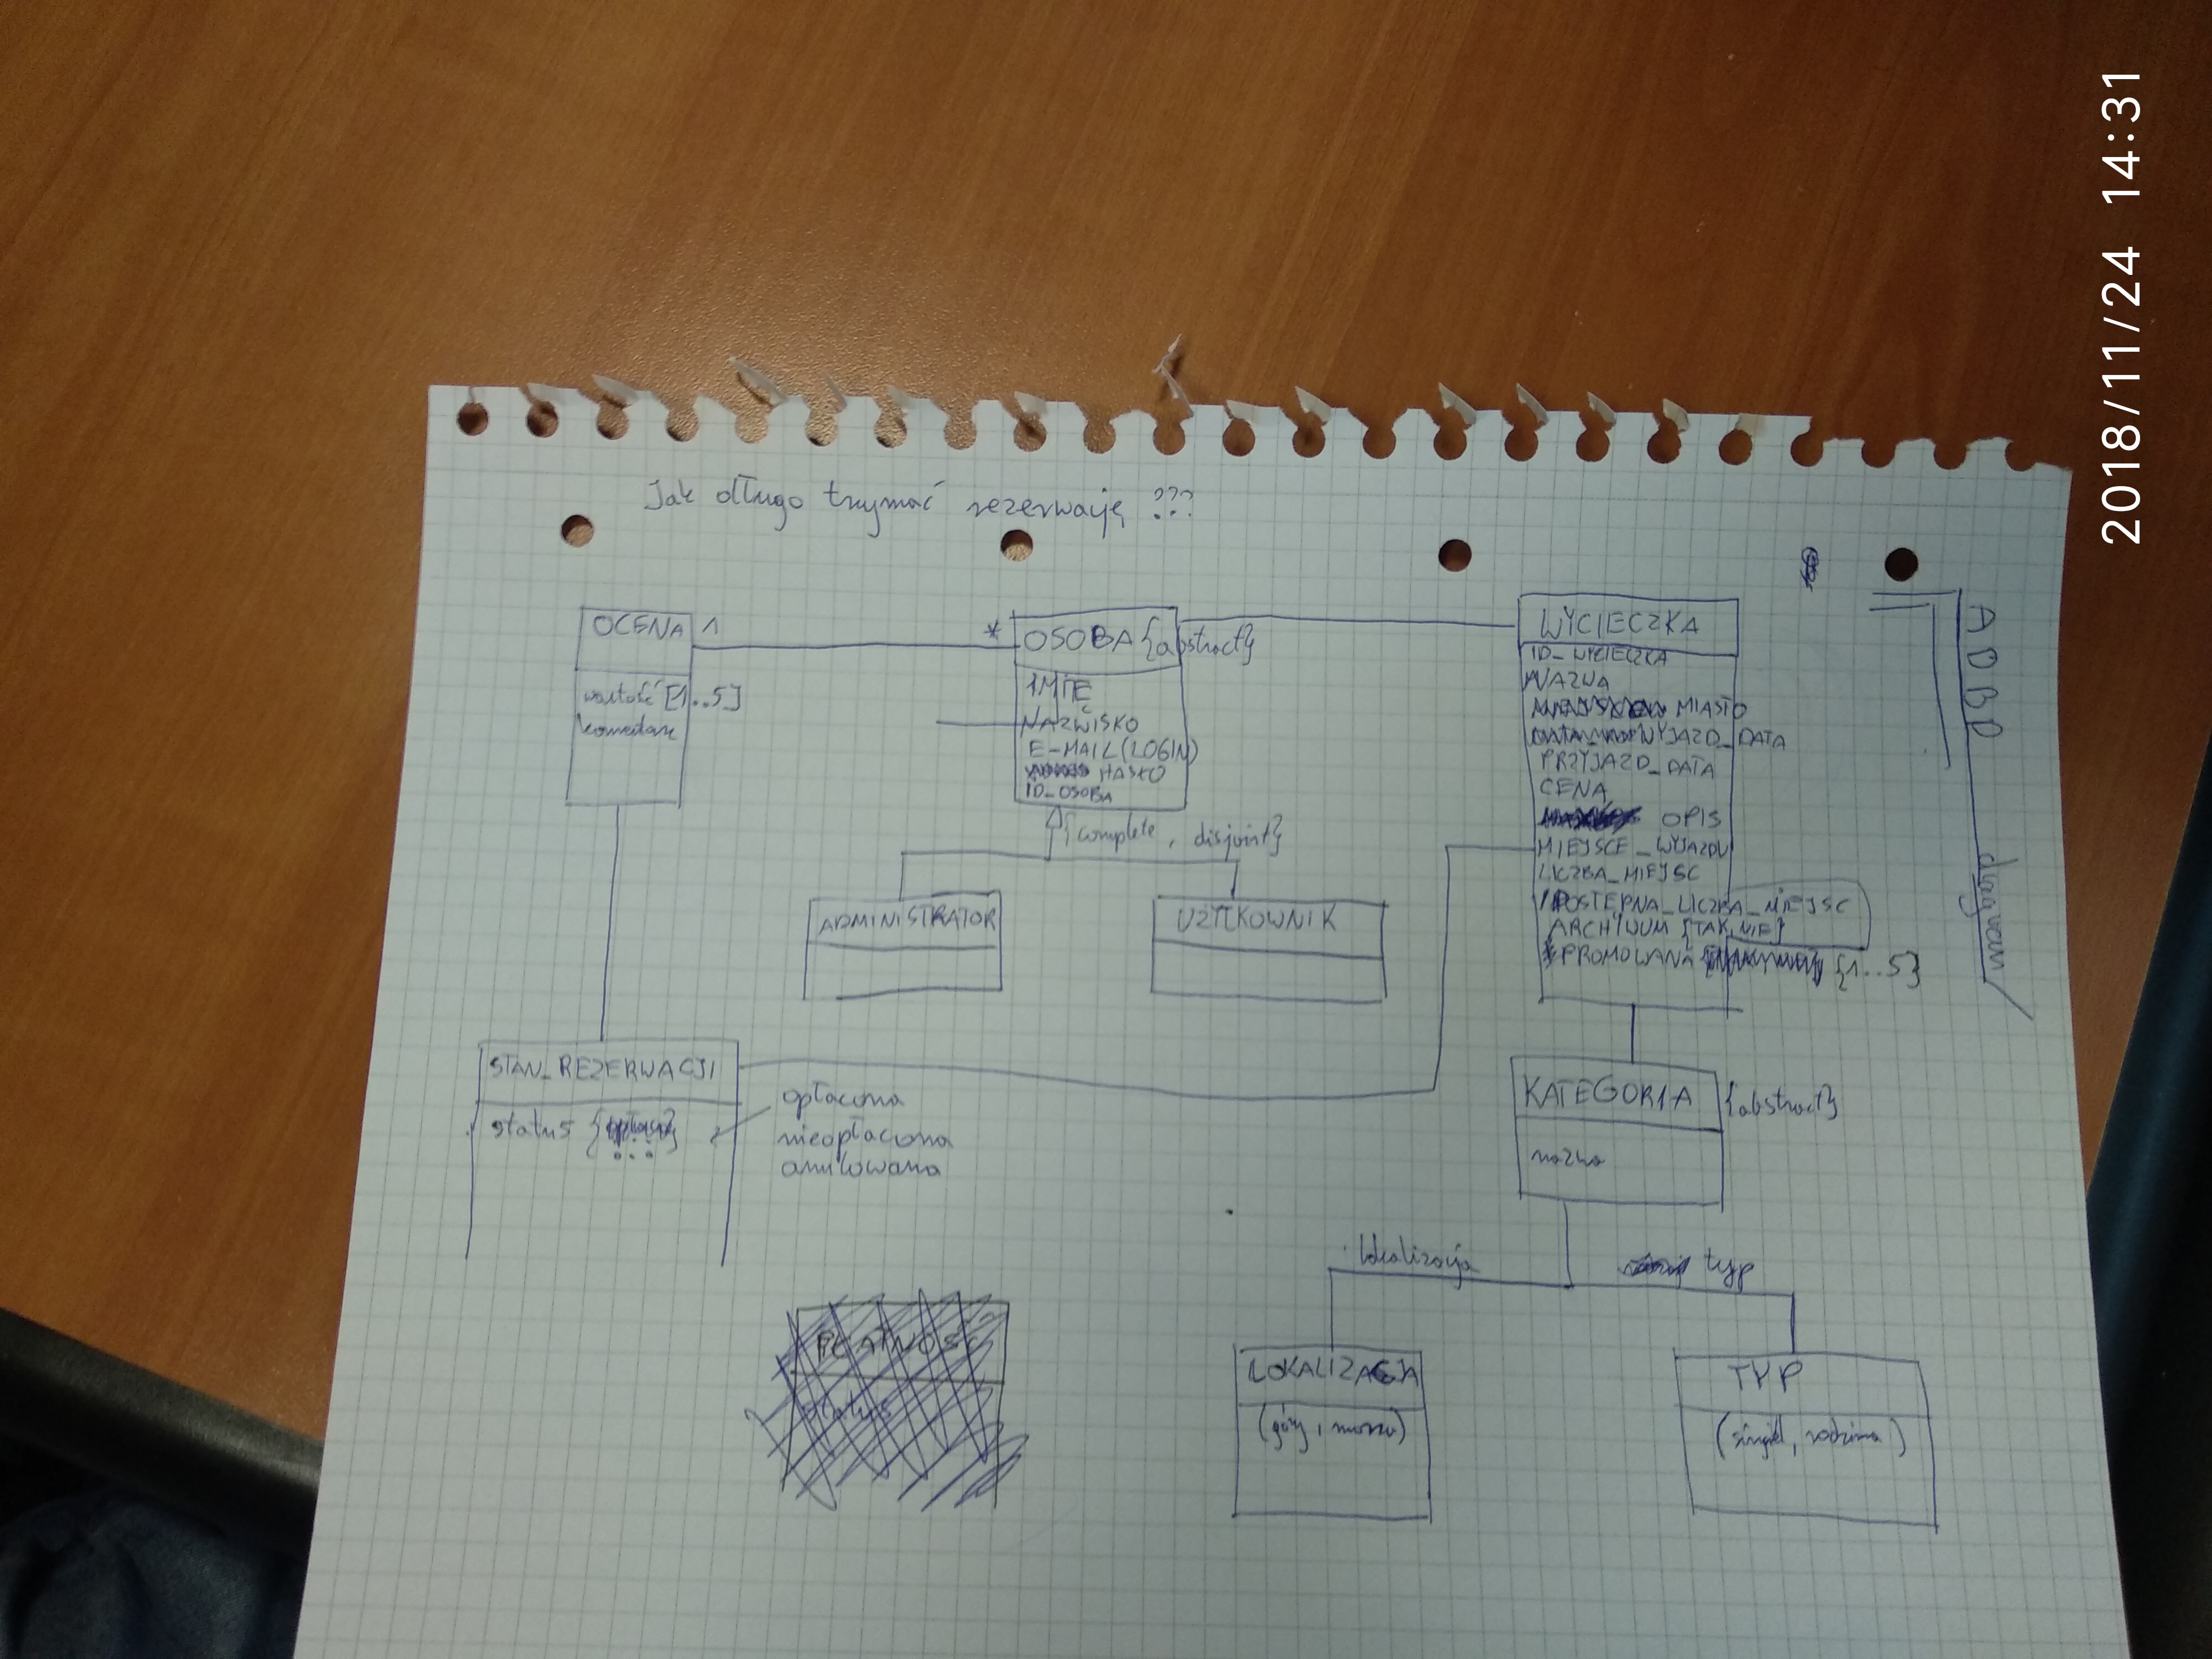 Jak długo trzymać rezerwację ???
OCENA 1
wartość [1..5]
komentarz
* OSOBA {abstract}
IMIĘ
NAZWISKO
E-MAIL (LOGIN)
HASŁO
ID_OSOBA
{complete, disjoint}
ADMINISTRATOR
UŻYTKOWNIK
WYCIECZKA
ID_WYCIECZKA
NAZWA
MIASTO
WYJAZD_DATA
PRZYJAZD_DATA
CENA
OPIS
MIEJSCE_WYJAZDU
LICZBA_MIEJSC
DOSTEPNA_LICZBA_MIEJSC
ARCHIWUM {TAK, NIE}
PROMOWANA {1..5}
ADBD
diagram
STAN_REZERWACJI
status {...}
opłacona
nieopłacona
anulowana
KATEGORIA {abstract}
nazwa
lokalizacja
typ
LOKALIZACJA
(góry, morze)
TYP
(singiel, rodzinna)
PŁATNOŚĆ
status
2018/11/24 14:31